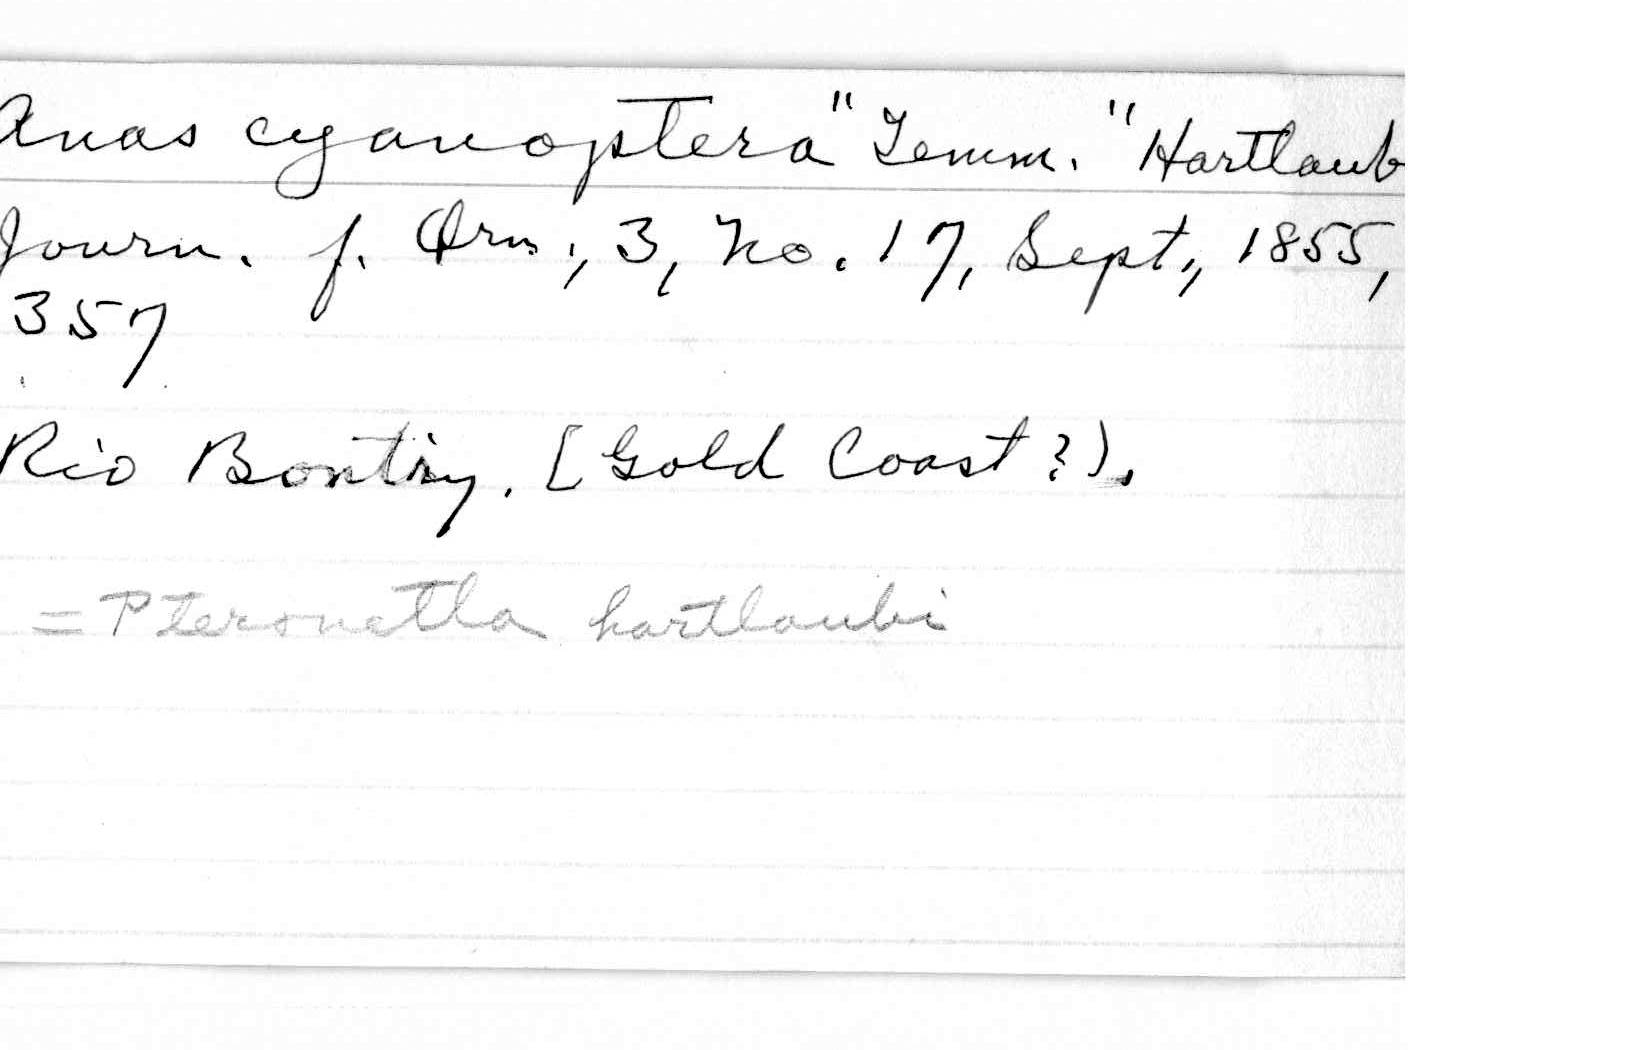 Anas cyanoptera "Temm." Hartlaub
Journ. f. Orn., 3, no. 17, Sept., 1855,
357
Rio Bontry. [Gold Coast?).
= Pteronetta hartlaubi